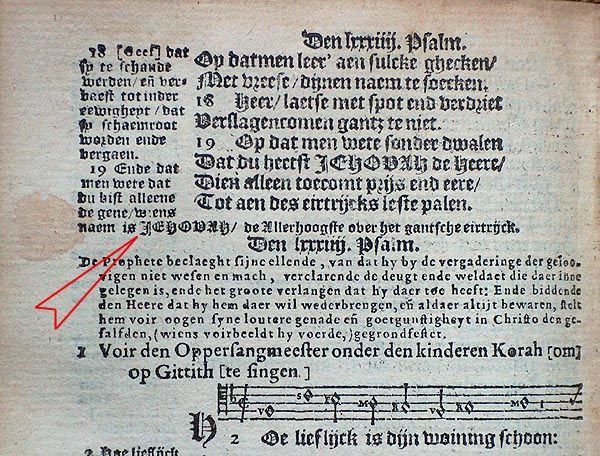 Den lxxxiiij. Psalm.
18 [Geef] dat
sy te schande
werden/ eñ ver-
baest tot inder
eewigheyt/ dat
sy schaemroot
worden ende
vergaen.
19 Ende dat
men wete dat
du bist alleene
de gene/ wiens
naem is JEHOVAH/ de Allerhoogste over het gantsche eirtrijck.
Op datmen leer' aen sulcke ghecken/
Met vreese/ dijnen naem te soecken.
18 Heer/ laetse met spot end verdriet
Verslagen comen gantz te niet.
19 Op dat men wete sonder dwalen
Dat du heetst JEHOVAH de Heere/
Dien alleen toecomt prijs end eere/
Tot aen des eirtrijcks leste palen.
Den lxxxiiij. Psalm.
De Prophete beclaeght sijne ellende, van dat hy by de vergaderinge der geloo-
vigen niet wesen en mach, verclarende de deugt ende weldaet die daer inne
gelegen is, ende het groote verlangen dat hy daer toe heeft: Ende biddende
den Heere dat hy hem daer wil wederbrengen, eñ aldaer altijt bewaren, stelt
hem voir oogen syne loutere genade eñ goetgunstigheyt in Christo den ge-
salfden, (wiens voirbeeldt hy voerde,) gegrondfestet.
1 Voir den Oppersangmeester onder den kinderen Korah [om]
op Gittith [te singen.]
H
2 Oe lieflijck is dijn woining schoon:
2 Hoe lieflijck